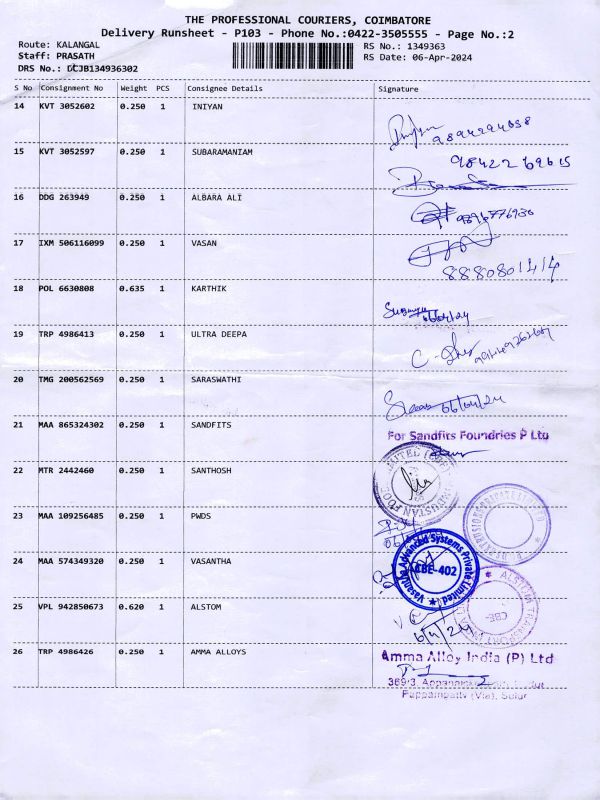 THE PROFESSIONAL COURIERS, COIMBATORE
Delivery Runsheet - P103 - Phone No.:0422-3505555 - Page No.:2
Route: KALANGAL
RS No.: 1349363
Staff: PRASATH
RS Date: 06-Apr-2024
DRS No.: DCJB134936302
S No Consignment No Weight PCS Consignee Details Signature
14 KVT 3052602 0.250 1 INIYAN
9894294858
15 KVT 3052597 0.250 1 SUBARAMANIAM
9842269615
16 DDG 263949 0.250 1 ALBARA ALI
17 IXM 506116099 0.250 1 VASAN
8880801414
18 POL 6630808 0.635 1 KARTHIK
06/04/24
19 TRP 4986413 0.250 1 ULTRA DEEPA
20 TMG 200562569 0.250 1 SARASWATHI
06/04/24
21 MAA 865324302 0.250 1 SANDFITS
For Sandfits Foundries P Ltd
22 MTR 2442460 0.250 1 SANTHOSH
23 MAA 109256485 0.250 1 PWDS
24 MAA 574349320 0.250 1 VASANTHA
Vasantha Advanced Systems Private Limited
CBE-402
25 VPL 942850673 0.620 1 ALSTOM
ALSTOM TRANSPORT
CBE-
6/4/24
26 TRP 4986426 0.250 1 AMMA ALLOYS
Amma Alloy India (P) Ltd
369/3,
Pappampatty (Via), Sulur